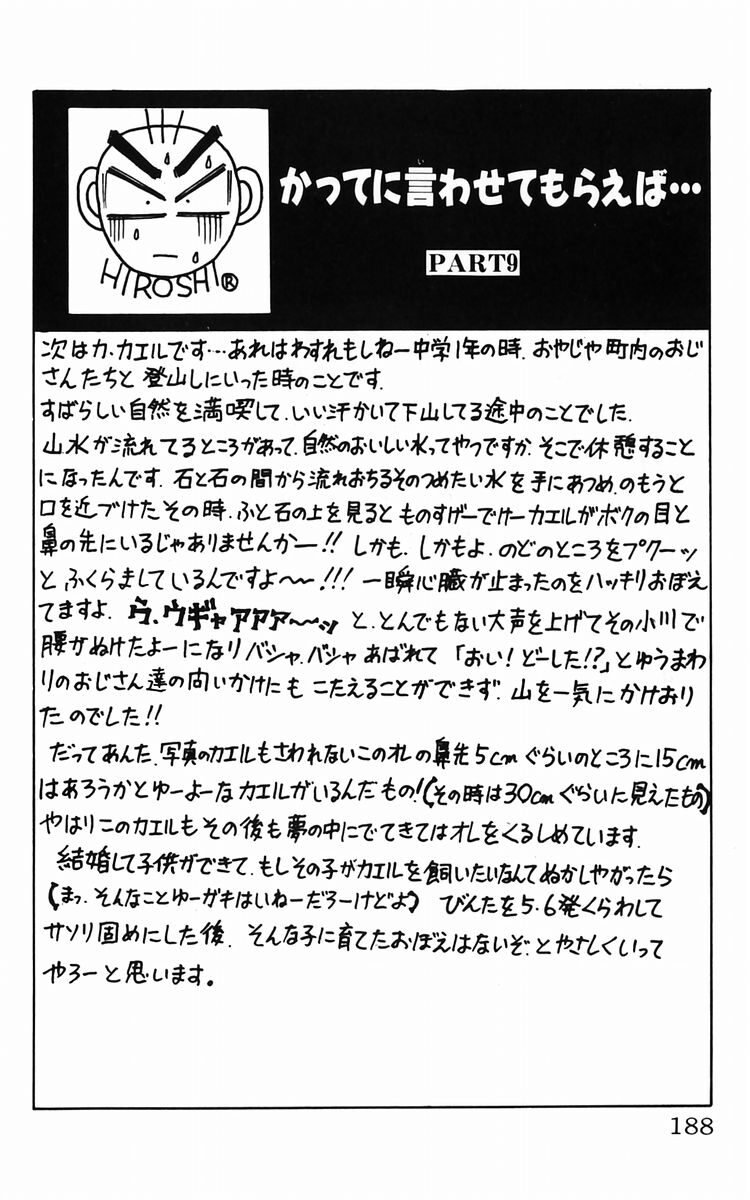 かってに言わせてもらえば…
い
PART9
HIROSHI®
次はカ、カエルです…あれはわすれもしねー中学1年の時、おやじや町内のおじ
さんたちと登山しにいった時のことです。
すばらしい自然を満喫して、いい汗かいて下山してる途中のことでした。
山水が流れてるところがあって、自然のおいしい水ってやつですか、そこで休憩すること
になったんです。石と石の間から流れおちるそのつめたい水を手にあつめ、のもうと
口を近づけたその時、ふと石の上を見るとものすげーでけーカエルがボクの目と
鼻の先にいるじゃありませんかー!!しかも、しかもよ、のどのところをプクーッ
とふくらましているんですよ〜〜!!!一瞬心臓が止まったのをハッキリおぼえ
てますよ。ウ、ウギャァァァ〜〜ッと、とんでもない大声を上げてその小川で
腰がぬけたよーになりバシャ、バシャあばれて「おい!どーした!?」とゆうまわ
りのおじさん達の問いかけにもこたえることができず、山を一気にかけおり
たのでした!!
だってあんた、写真のカエルもさわれないこのオレの鼻先5cmぐらいのところに15cm
はあろうかとゆーよーなカエルがいるんだもの!(その時は30cmぐらいに見えたもの)
やはりこのカエルもその後も夢の中にでてきてはオレをくるしめています。
結婚して子供ができて、もしその子がカエルを飼いたいなんてぬかしやがったら
(まっ、そんなことゆーガキはいねーだろーけどよ)びんたを5、6発くらわして
サソリ固めにした後、そんな子に育てたおぼえはないぞ、とやさしくいって
やろーと思います。
188